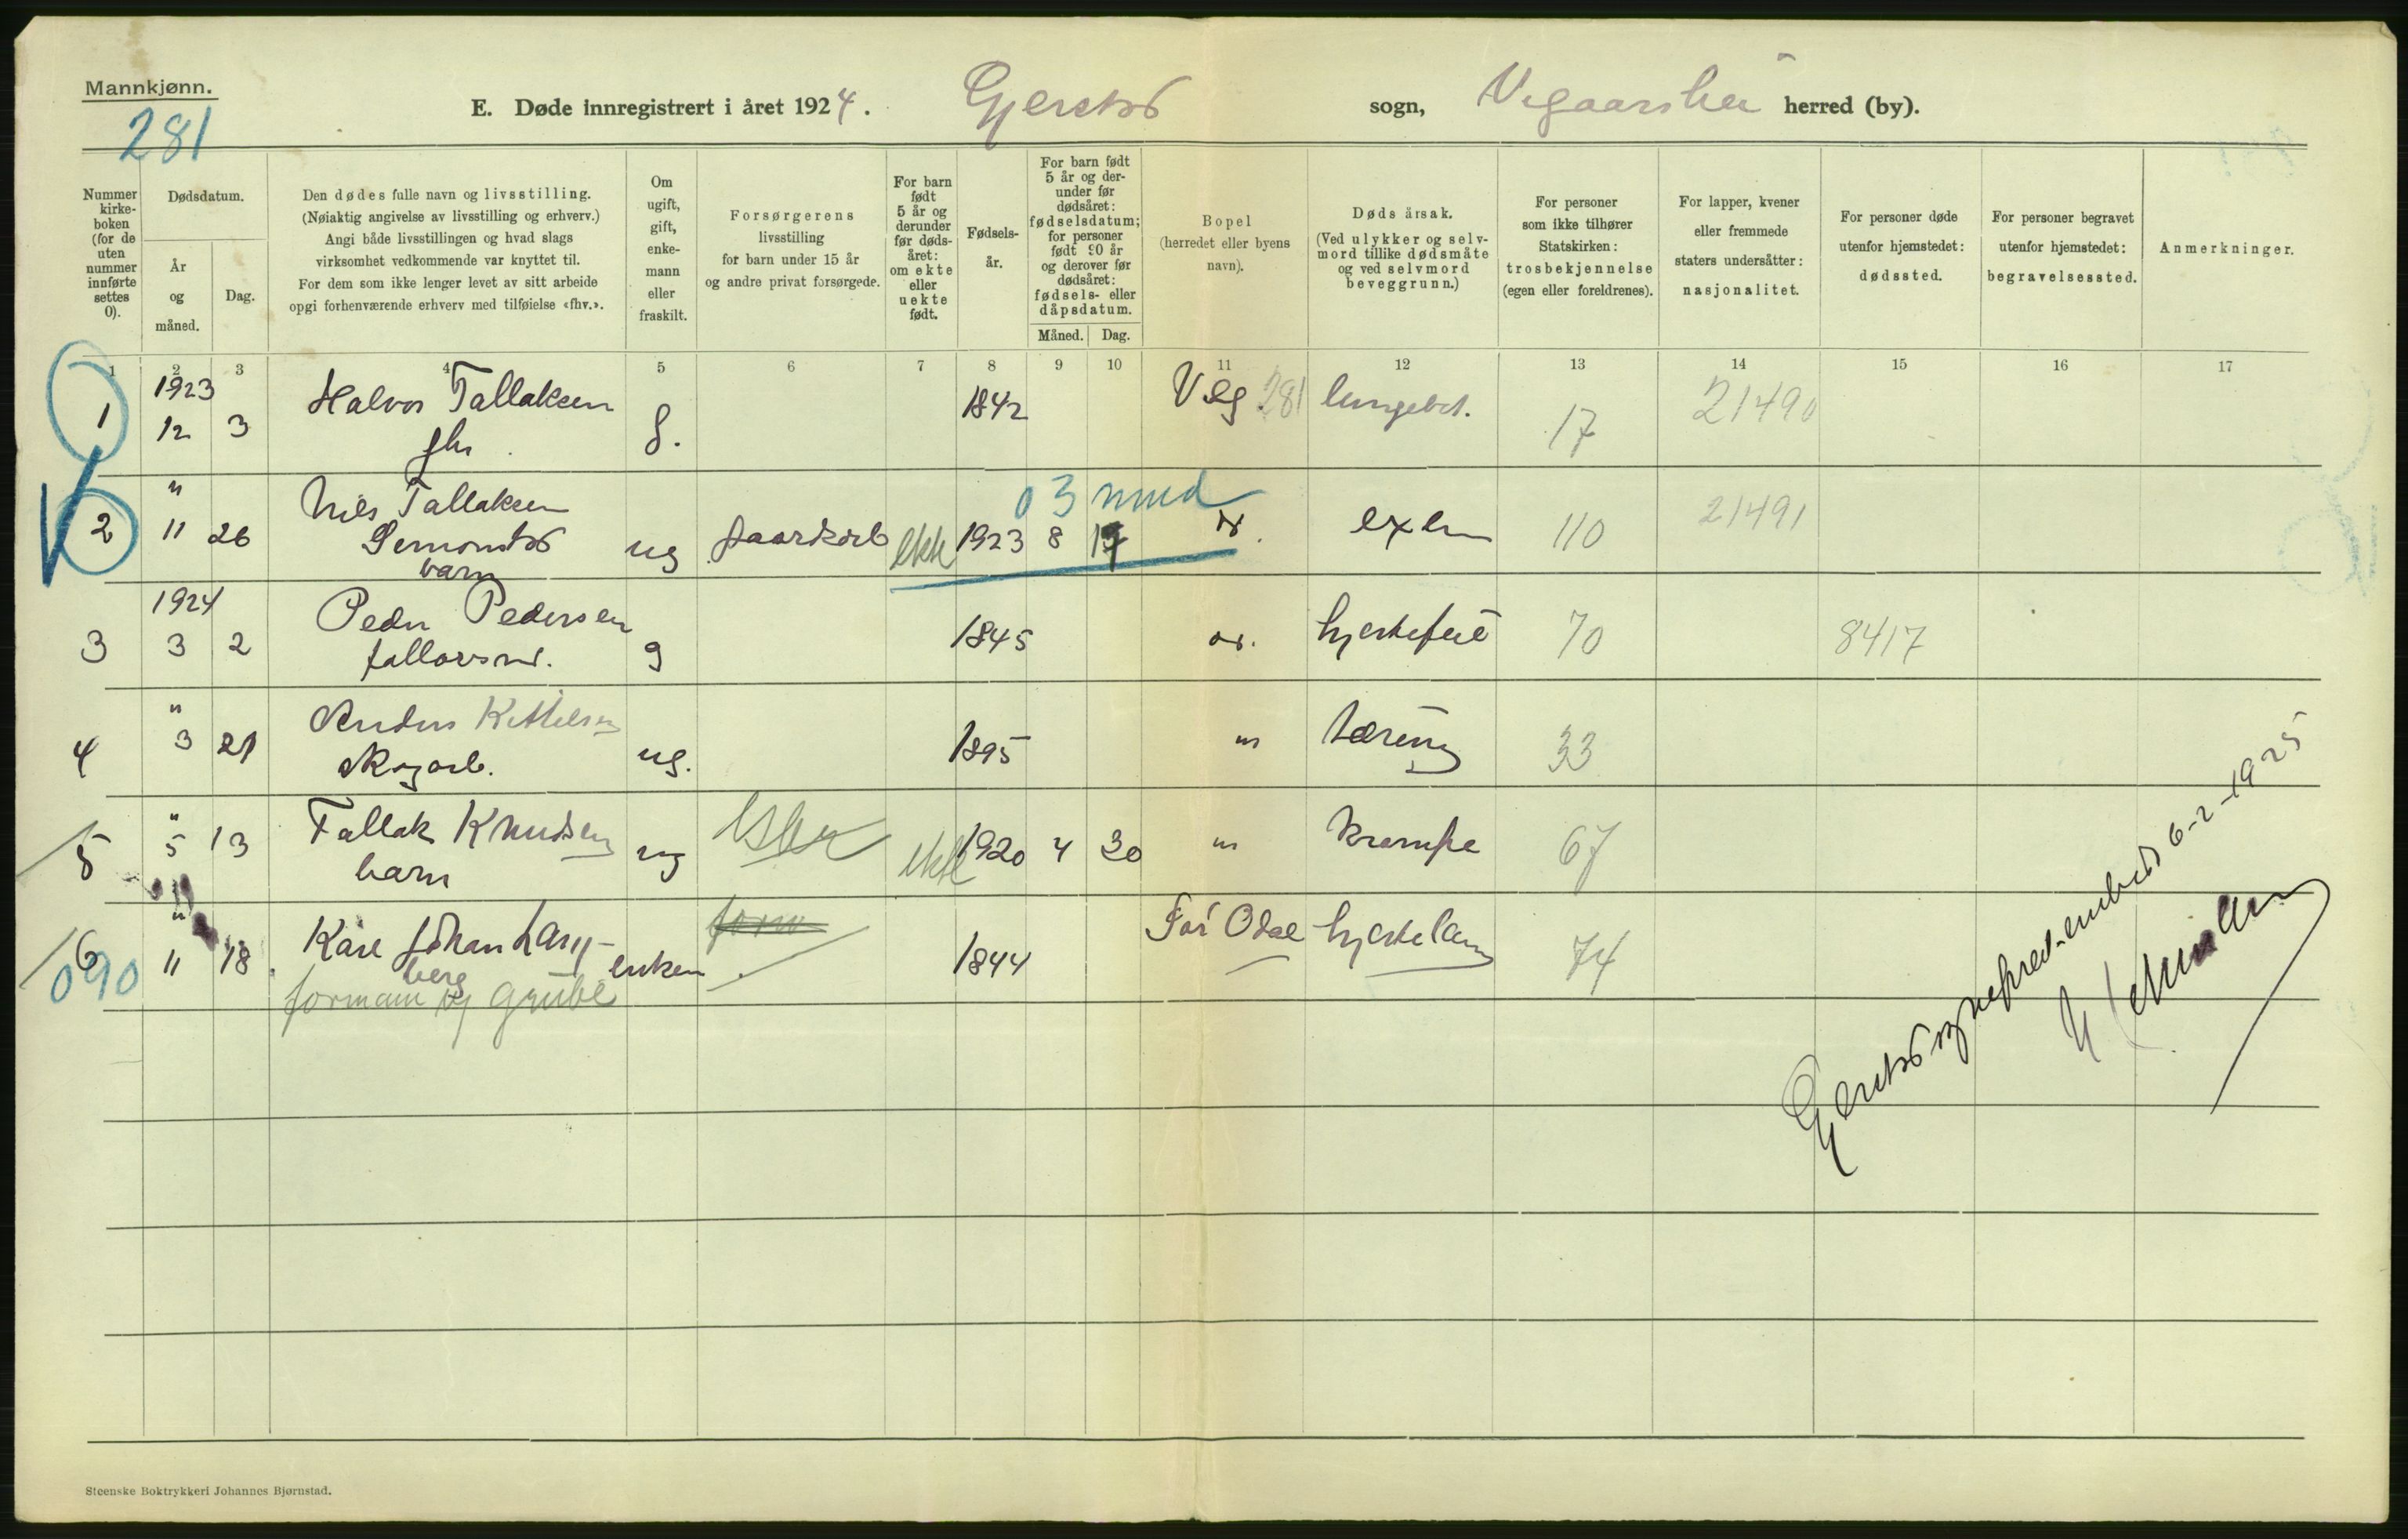 Mannkjønn.
281
E. Døde innregistrert i året 1924. Gjerstad sogn, Vegaarshei herred (by).
Nummer kirke-boken (for de uten nummer innførte settes 0).
Dødsdatum.
År og måned.
Dag.
Den dødes fulle navn og livsstilling.
(Nøiaktig angivelse av livsstilling og erhverv.)
Angi både livsstillingen og hvad slags
virksomhet vedkommende var knyttet til.
For dem som ikke lenger levet av sitt arbeide
opgi forhenværende erhverv med tilføielse «fhv.».
Om ugift, gift, enke-mann eller fraskilt.
Forsørgerens
livsstilling
for barn under 15 år
og andre privat forsørgede.
For barn født 5 år og derunder før døds-året: om ekte eller uekte født.
Fødsels-år.
For barn født 5 år og der-under før dødsåret: fødselsdatum; for personer født 90 år og derover før dødsåret: fødsels- eller dåpsdatum.
Måned. Dag.
Bopel
(herredet eller byens
navn).
Dødsårsak.
(Ved ulykker og selv-
mord tillike dødsmåte
og ved selvmord
beveggrunn.)
For personer
som ikke tilhører
Statskirken:
trosbekjennelse
(egen eller foreldrenes).
For lapper, kvener
eller fremmede
staters undersåtter:
nasjonalitet.
For personer døde
utenfor hjemstedet:
dødssted.
For personer begravet
utenfor hjemstedet:
begravelsessted.
Anmerkninger.
1 2 3 4 5 6 7 8 9 10 11 12 13 14 15 16 17
1 1923 12 3 Halvor Tallaksen g. 1842 Veg 281 lungebet. 17 21490
03 mnd
2 " 11 26 Nils Tallaksen barn ug gaardarb ekte 1923 8 17 exem 110 21491
3 1924 3 2 Peder Pedersen g 1845 hjertefeil 70 8417
4 " 3 21 Anders Kittilsen skogarb. ug. 1895 " tæring 33
5 " 5 13 Tallak Knudsen barn ug ekte 1920 4 30 " krampe 67
6 " 11 18 Karl Johan Lang-berg enkem 1844 Odal hjertelam 74
090 formann
Gjerstad sogneprestembede 6-2-1925
Steenske Boktrykkeri Johannes Bjørnstad.